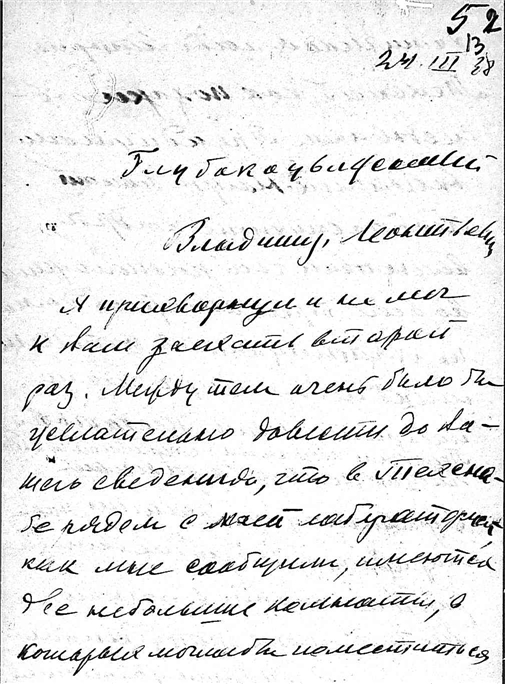 52
13
24. III 28
Глубокоуважаемый
Владимир Леонтьевич
Я прихворнул и не мог
к Вам заехать второй
раз. Между тем очень было бы
желательно довести до Ва-
шего сведения, что в Техсна-
бе рядом с моей лабораторией,
как мне сообщили, имеются
две небольшие комнаты, в
которых могли бы поместиться